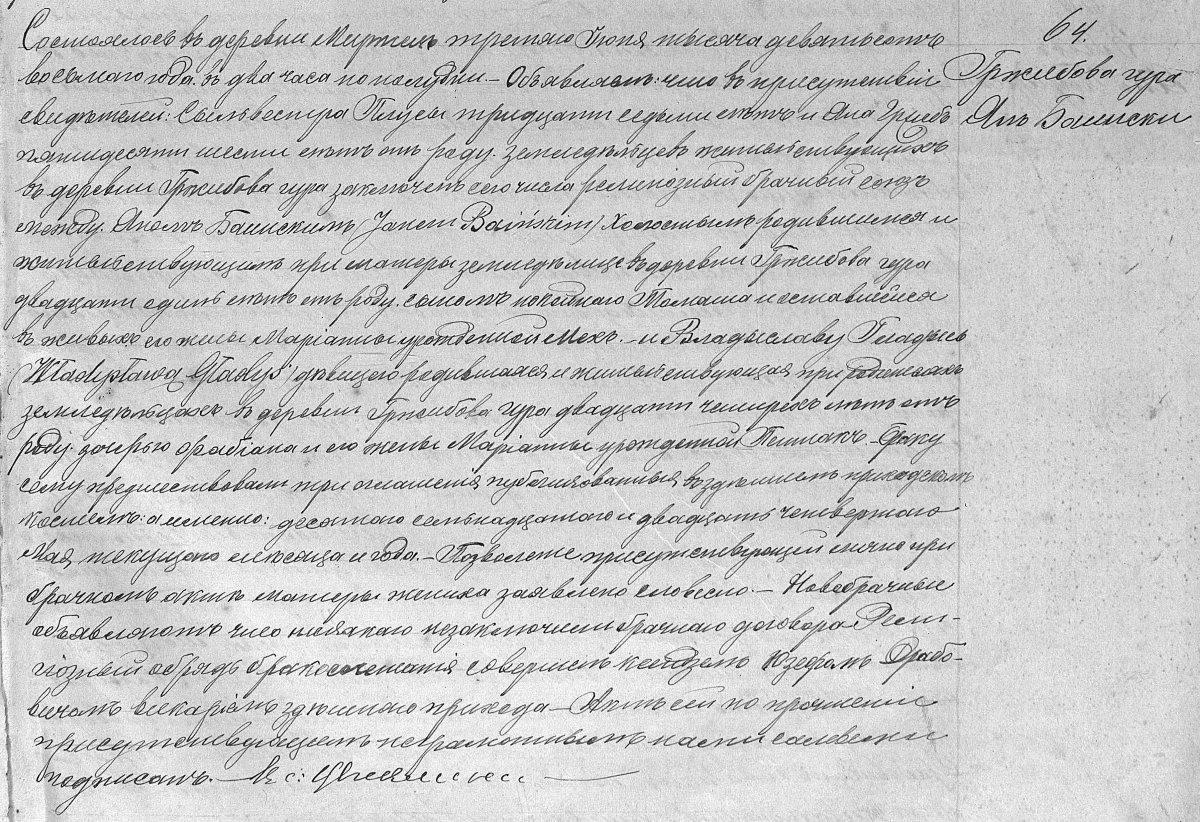 64.
Гржибова гура
Янъ Баински
Состоялось въ деревни Миржецъ третяго Іюня тысяча девятьсотъ
восьмаго года въ два часа по полудни. – Объявляемъ: что въ присутствій
свидѣтелей: Сыльвестра Плусы тридцати седьми лѣтъ и Яна Гржебъ
пятидесяти шести лѣтъ отъ роду, земледѣльцевъ жительствующихъ
въ деревни Гржибова гура заключенъ сего числа религіозный брачный союзъ
между Яномъ Баинскимъ /Janem Baińskim/ Холостымъ родившимся и
жительствующимъ при матери земледѣлице въ деревни Гржибова гура
двадцати единъ лѣтъ отъ роду, сыномъ покойнаго Томаша и оставшейся
въ живыхъ его жены Маріанны урожденной Мехъ. – и Владыславу Гладысь
(Władysława Gładyś) дѣвицею родившаяся и жительствующая при родителяхъ
земледѣльцахъ въ деревни Гржибова гура двадцати четырехъ лѣтъ отъ
роду, дочерью Фабіана и его жены Маріанны урожденной – Браку
сему предшествовали три оглашенія публикованныя въ здѣшнемъ приходскомъ
костелѣ: а именно: десятаго семьнадцатаго и двадцать четвертаго
Мая текущаго мѣсяца и года. – Позволеніе присутствующей лично при
брачномъ актѣ матеры жениха заявлено словесно. – Новобрачные
объявляютъ что никакаго незаключили брачнаго договора. Рели-
гіозный обрядъ бракосочетанія совершенъ ксендземъ Юзефомъ Драбо-
вичомъ викаріемъ здѣшняго прихода – Актъ сей по прочтеніи
присутствующимъ неграмотнымъ нами
подписанъ. – Кс: